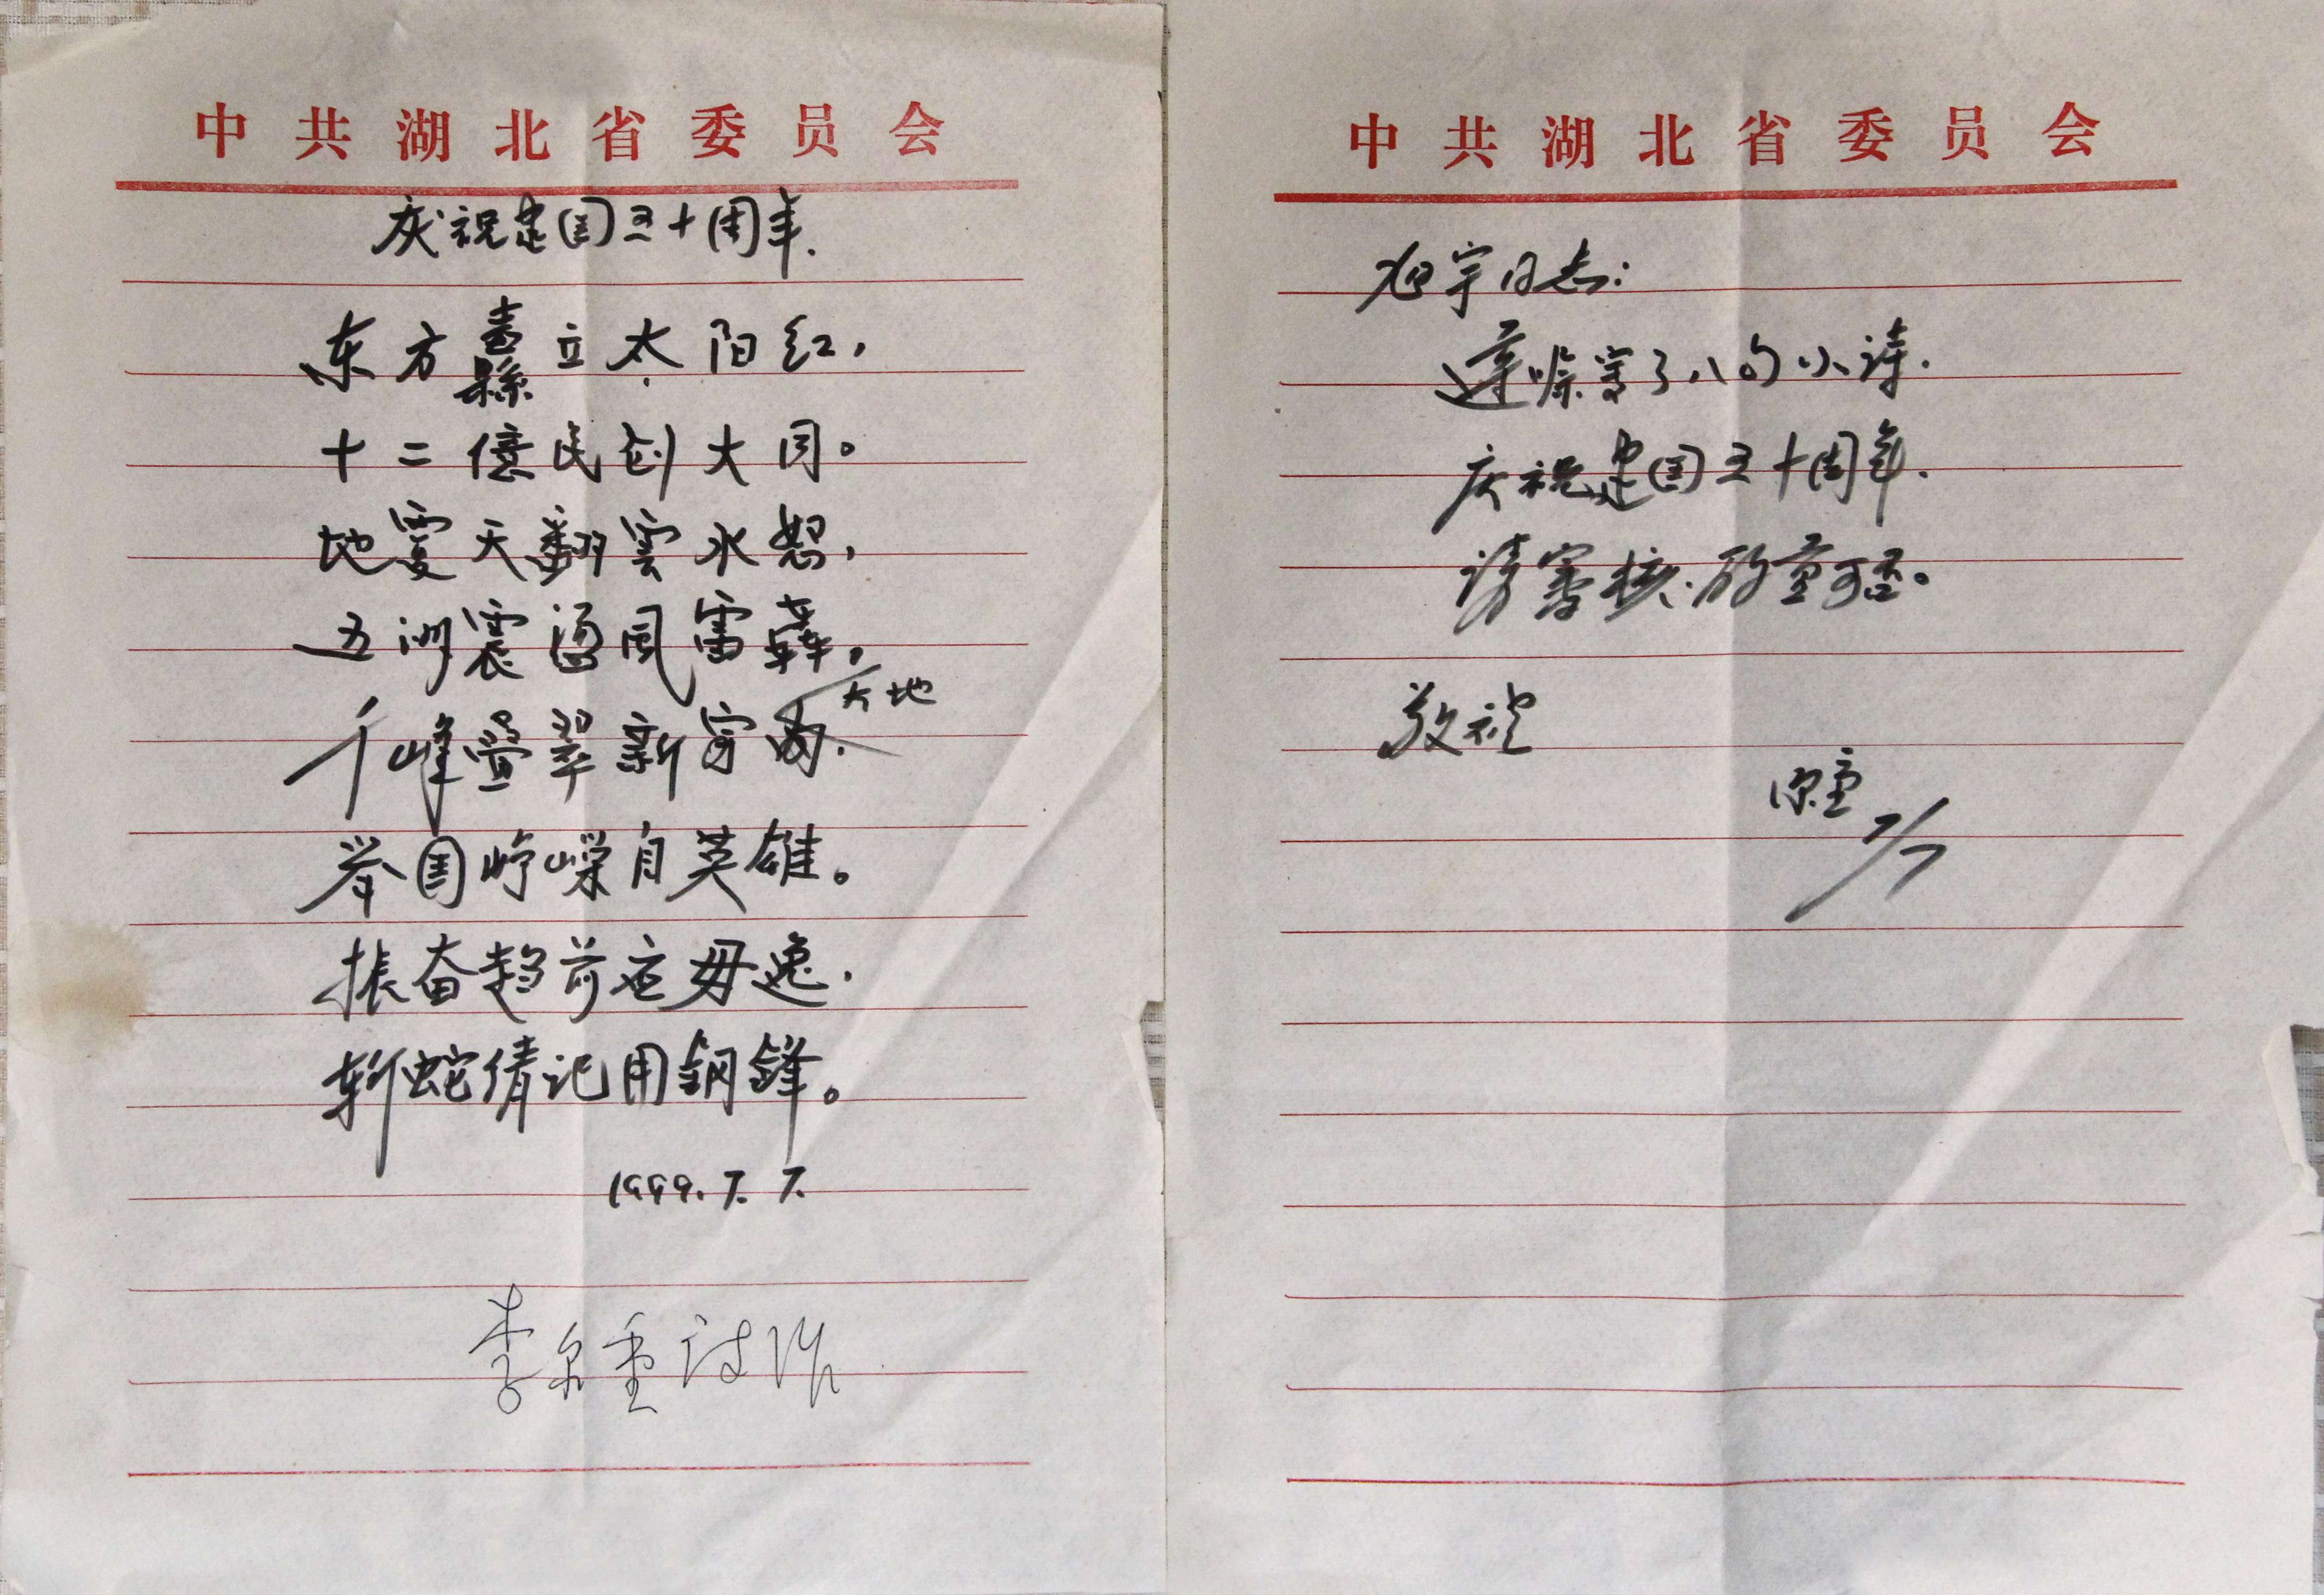 中共湖北省委员会
庆祝建国五十周年.
东方矗立太阳红，
十二億民创大同。
地震天翻雲水怒，
五洲震盪風雷轟。
大地
千峰疊翠新宇
举国峥嵘自英雄。
振奋趋前应毋逸.
斬蛇倩记用鋼鋒。
1999.7.7.
李尔重诗作
中共湖北省委员会
旭宇同志:
遵嘱写了八句小诗.
庆祝建国五十周年.
请審核.酌定可否。
敬礼
尔重
7/7